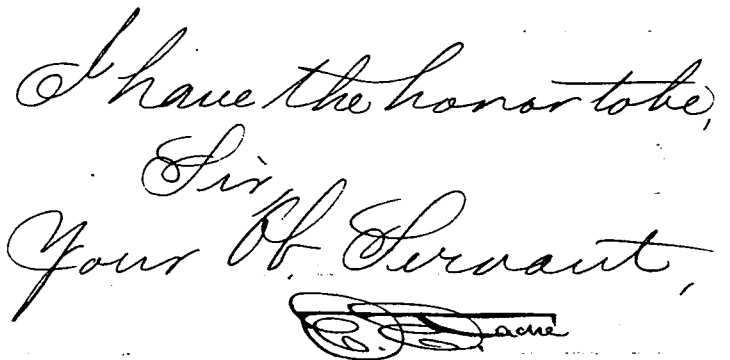 I have the honor to be,
Sir,
Your Ob. Servant,
E. E. Taché